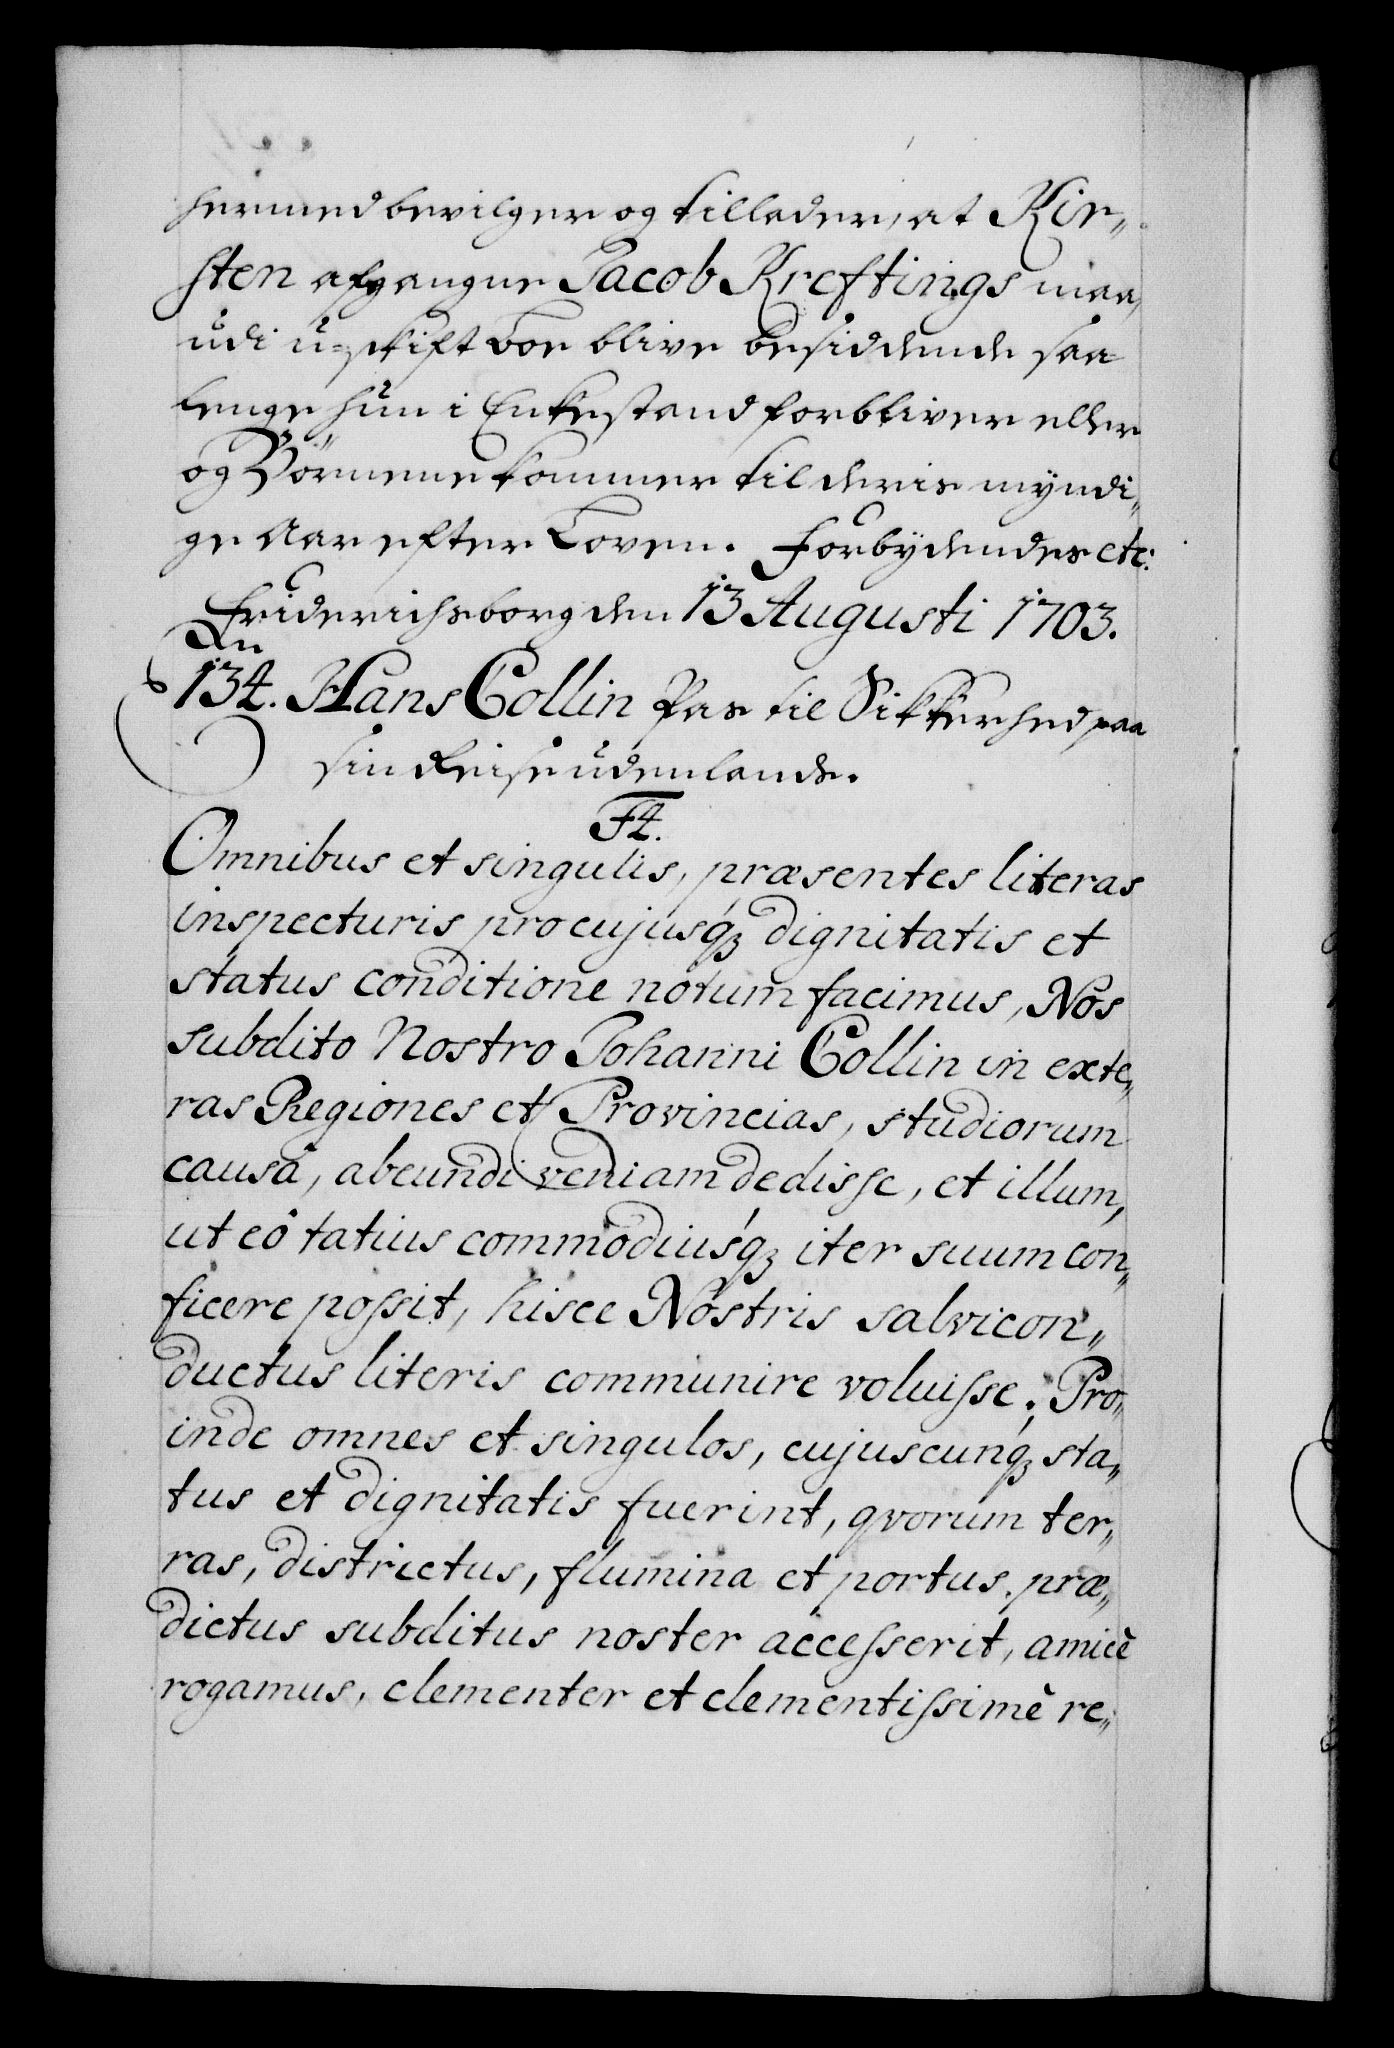 hermed bevilger og tillader, at Kir„
sten afgangne Jacob Kreftings maa
udi u-skift Boe blive besiddende saa
lenge hun i Enkestand forbliver eller
og Börnene kommer til deris myndi„
ge Aar efter Loven. Forbydendes etc:
Friderichsborg den 13 Augusti 1703.
En
134. Hans Collin Pas til Sikkerhed paa
sin Reise udenlands.
F4.
Omnibus et singulis, præsentes literas
inspecturis pro cujusq́ꝫ dignitatis et
status conditione notum facimus, Nos
subdito Nostro Johanni Collin in exte„
ras Regiones et Provincias, studiorum
causâ, abeundi veniam dedisse, et illum,
ut eò tatius commodiusq́ꝫ iter suum con„
ficere possit, hisce Nostris salvicon„
ductus literis communire voluisse. Pro„
inde omnes et singulos, cujuscunq́ꝫ sta„
tus et dignitatis fuerint, qvorum ter„
ras, districtus, flumina et portus præ„
dictus subditus noster accesserit, amicè
rogamus, clementer et clementissimè re„